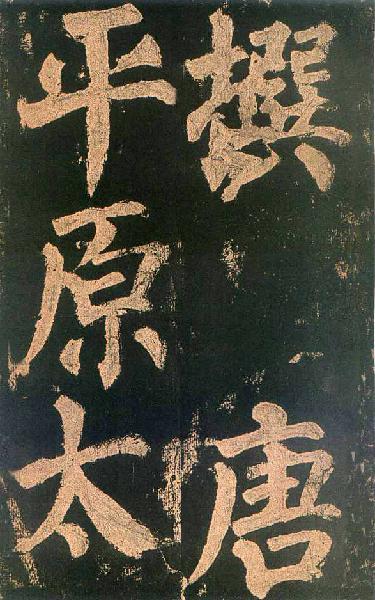 撰 唐
平原太